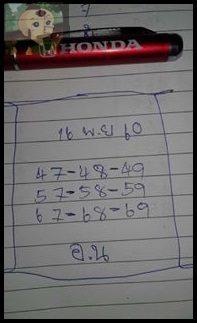 HONDA
16 พ.ย 60
47-48-49
57-58-59
67-68-69
อ.น